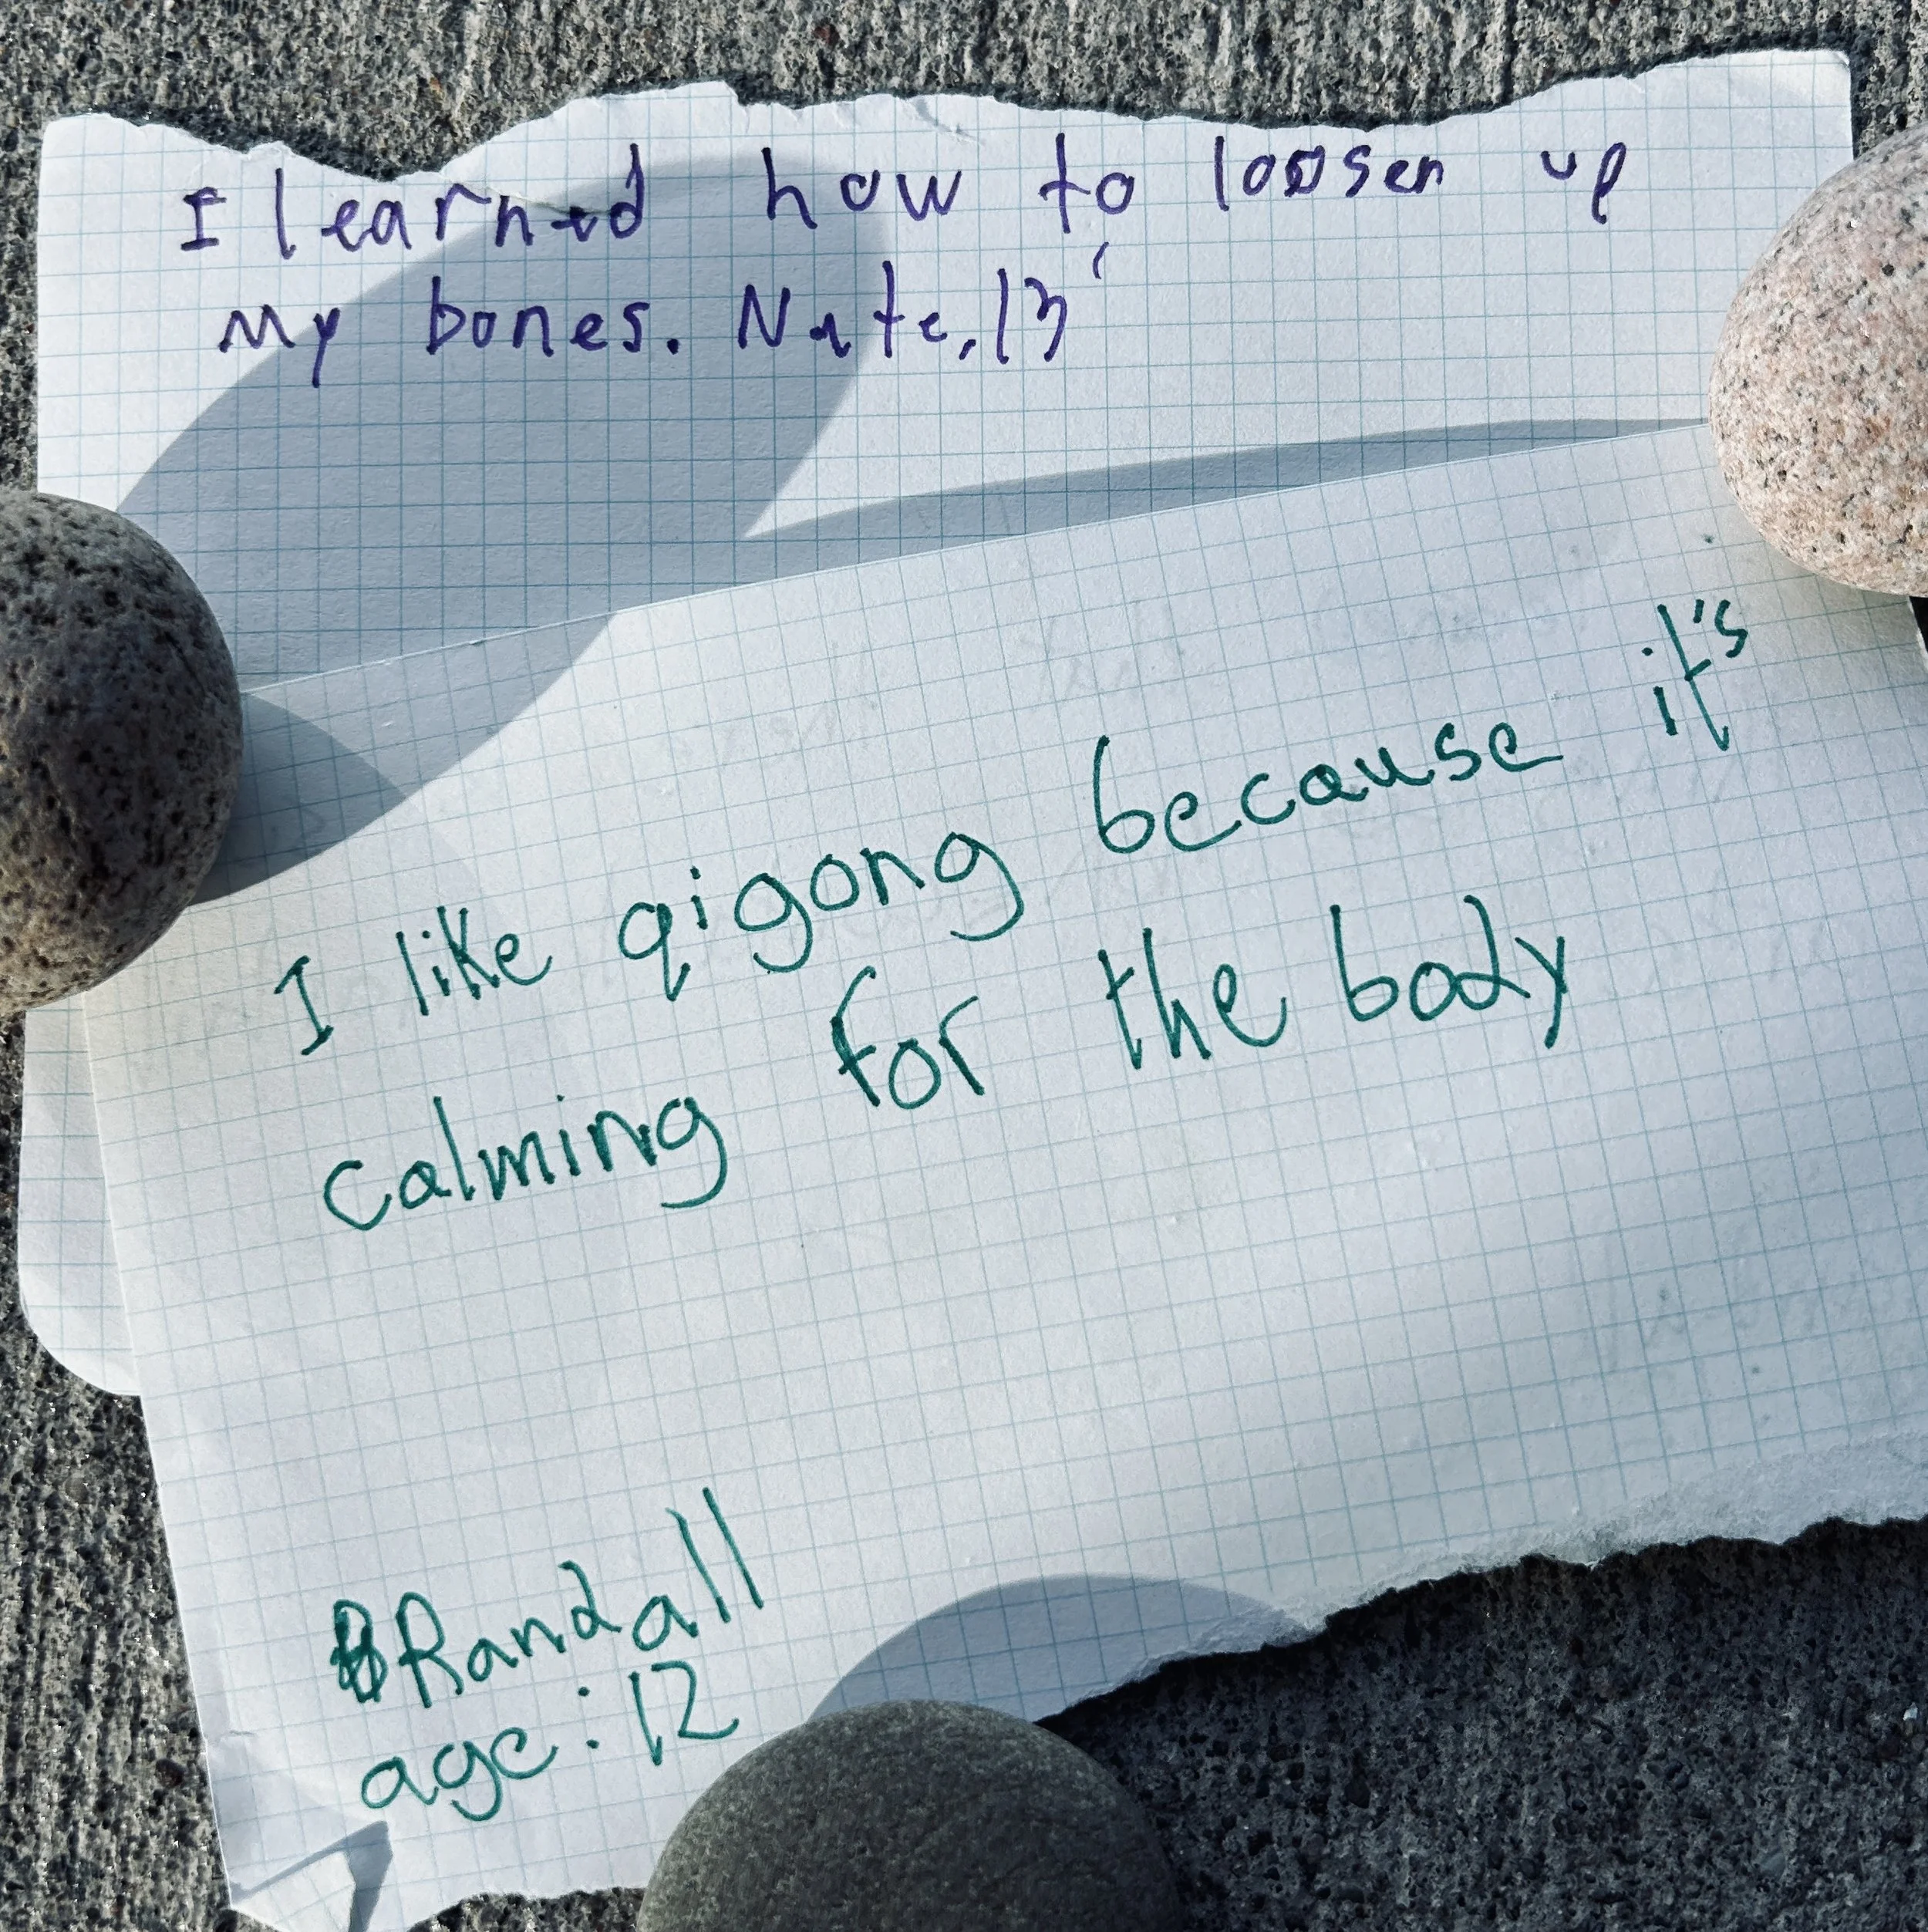 I learned how to loosen up
my bones. Nate, 13
I like qigong because it's
calming for the body
Randall
age: 12